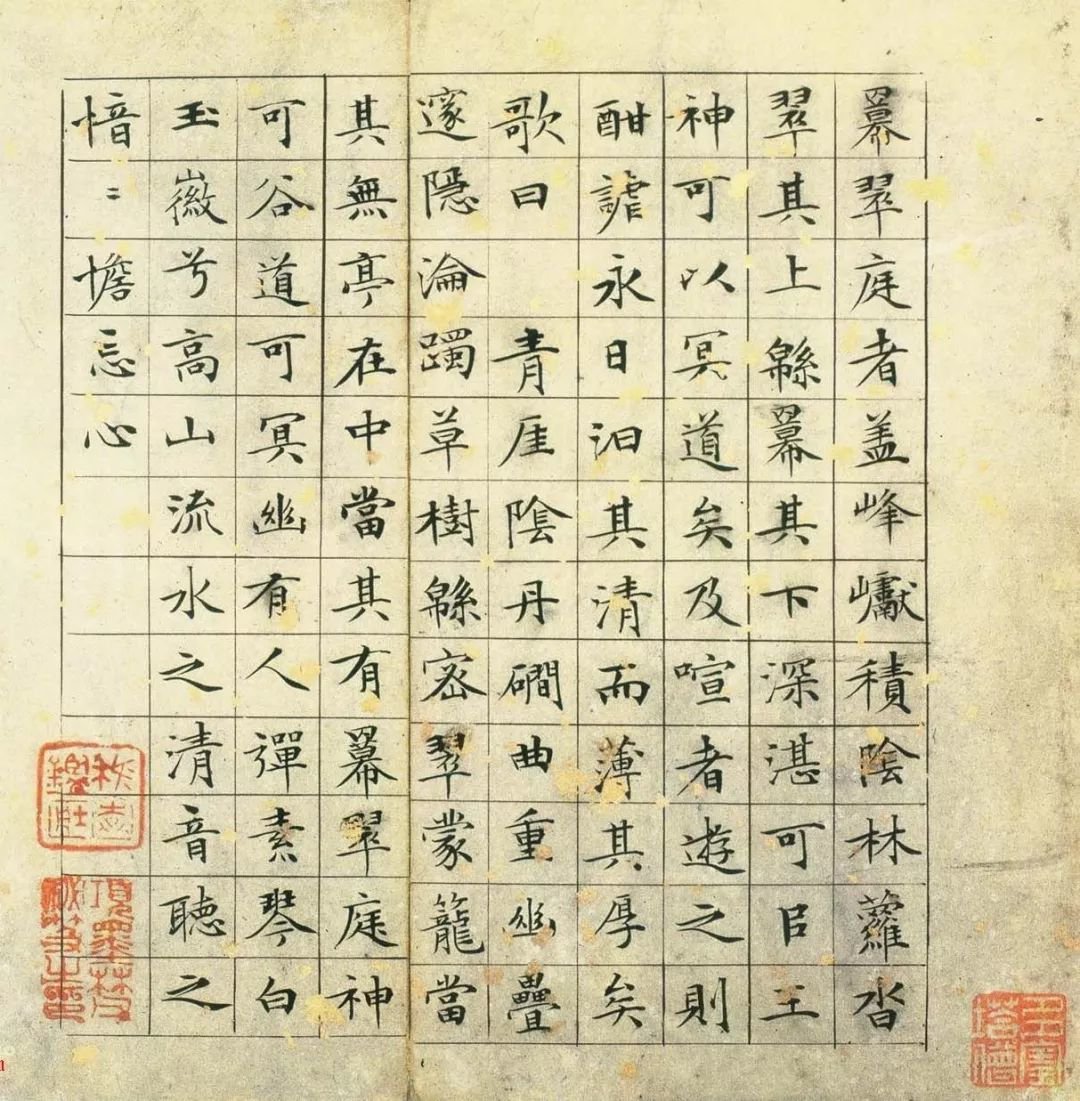 幕翠庭者盖峰巘積陰林蘿沓
翠其上緜幕其下深湛可㠯王
神可以冥道矣及喧者遊之則
酣謔永日汩其清而薄其厚矣
歌曰　青厓陰丹磵曲重幽疊
邃隱淪躅草樹緜密翠蒙籠當
其無亭在中當其有幕翠庭神
可谷道可冥幽有人彈素琴白
玉徽兮高山流水之清音聽之
愔〻憺忘心